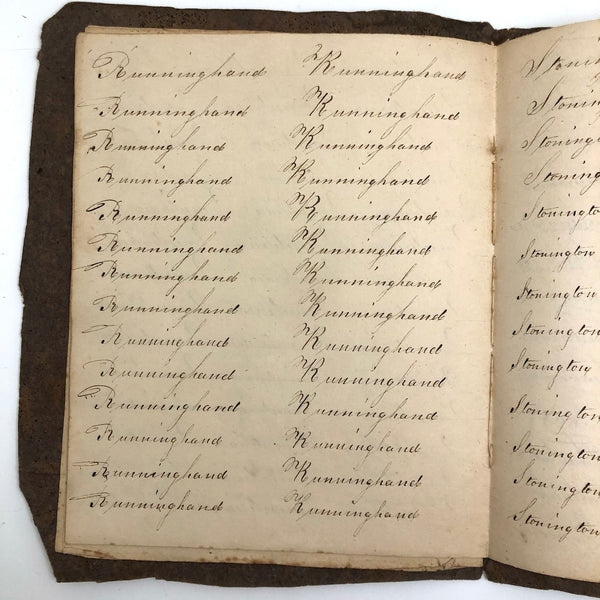 Runninghand Runninghand
Runninghand Runninghand
Runninghand Runninghand
Runninghand Runninghand
Runninghand Runninghand
Runninghand Runninghand
Runninghand Runninghand
Runninghand Runninghand
Runninghand Runninghand
Runninghand Runninghand
Runninghand Runninghand
Runninghand Runninghand
Runninghand Runninghand
Runninghand Runninghand
Stonin
Stonin
Stoning
Stoning
Stoningtow
Stoningtow
Stoningtow
Stoningtow
Stoningtow
Stoningtow
Stoningtow
Stoningtow
Stoningtow